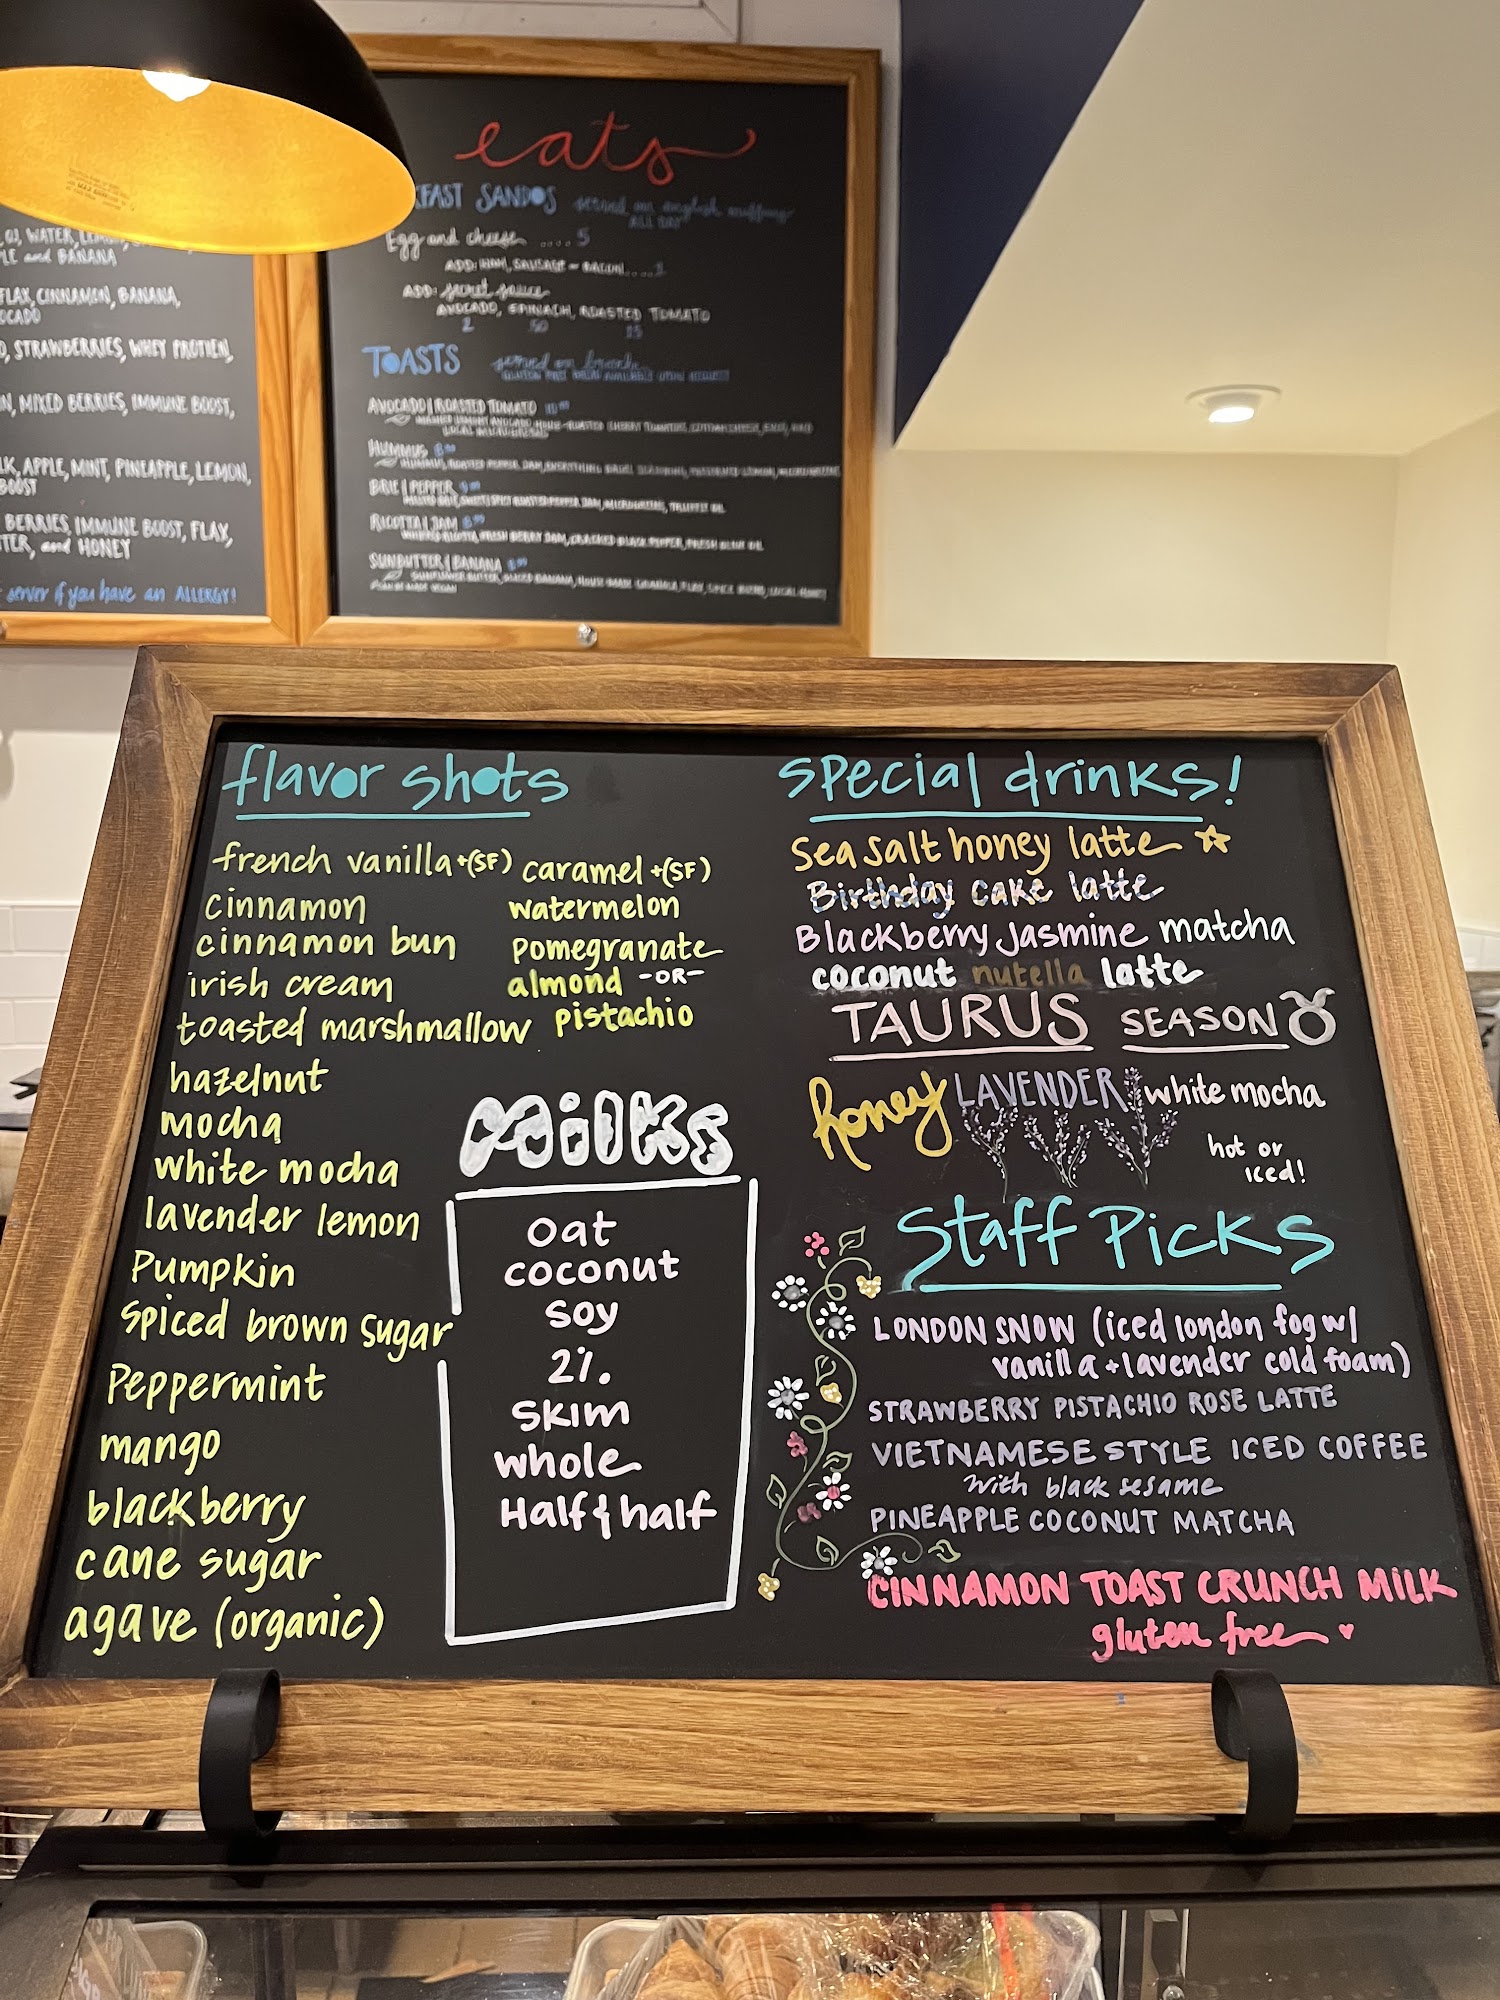 eats
FAST SANDOS served on english muffins
ALL DAY
Egg and cheese .... 5
ADD: HAM, SAUSAGE or BACON....
ADD: secret sauce
AVOCADO, SPINACH, ROASTED TOMATO
2 50
TOASTS served on
AVOCADO | ROASTED TOMATO
HUMMUS
BRIE | PEPPER
RICOTTA | JAM
SUNBUTTER | BANANA
OJ, WATER,
and BANANA
FLAX, CINNAMON, BANANA,
STRAWBERRIES, WHEY PROTIEN,
MIXED BERRIES, IMMUNE BOOST,
APPLE, MINT, PINEAPPLE, LEMON,
BOOST
BERRIES, IMMUNE BOOST, FLAX,
and HONEY
server if you have an ALLERGY!
flavor shots
french vanilla +(SF)
cinnamon
cinnamon bun
irish cream
toasted marshmallow
hazelnut
mocha
white mocha
lavender lemon
Pumpkin
spiced brown sugar
Peppermint
mango
blackberry
cane sugar
agave (organic)
caramel +(SF)
watermelon
pomegranate
almond -OR-
pistachio
Milks
oat
coconut
soy
2%
skim
whole
Half & half
special drinks!
Sea salt honey latte
Birthday cake latte
Blackberry Jasmine matcha
coconut nutella latte
TAURUS SEASON ♉
honey LAVENDER white mocha
hot or
iced!
Staff Picks
LONDON SNOW (iced london fog w/
vanilla + lavender cold foam)
STRAWBERRY PISTACHIO ROSE LATTE
VIETNAMESE STYLE ICED COFFEE
with black sesame
PINEAPPLE COCONUT MATCHA
CINNAMON TOAST CRUNCH MILK
gluten free